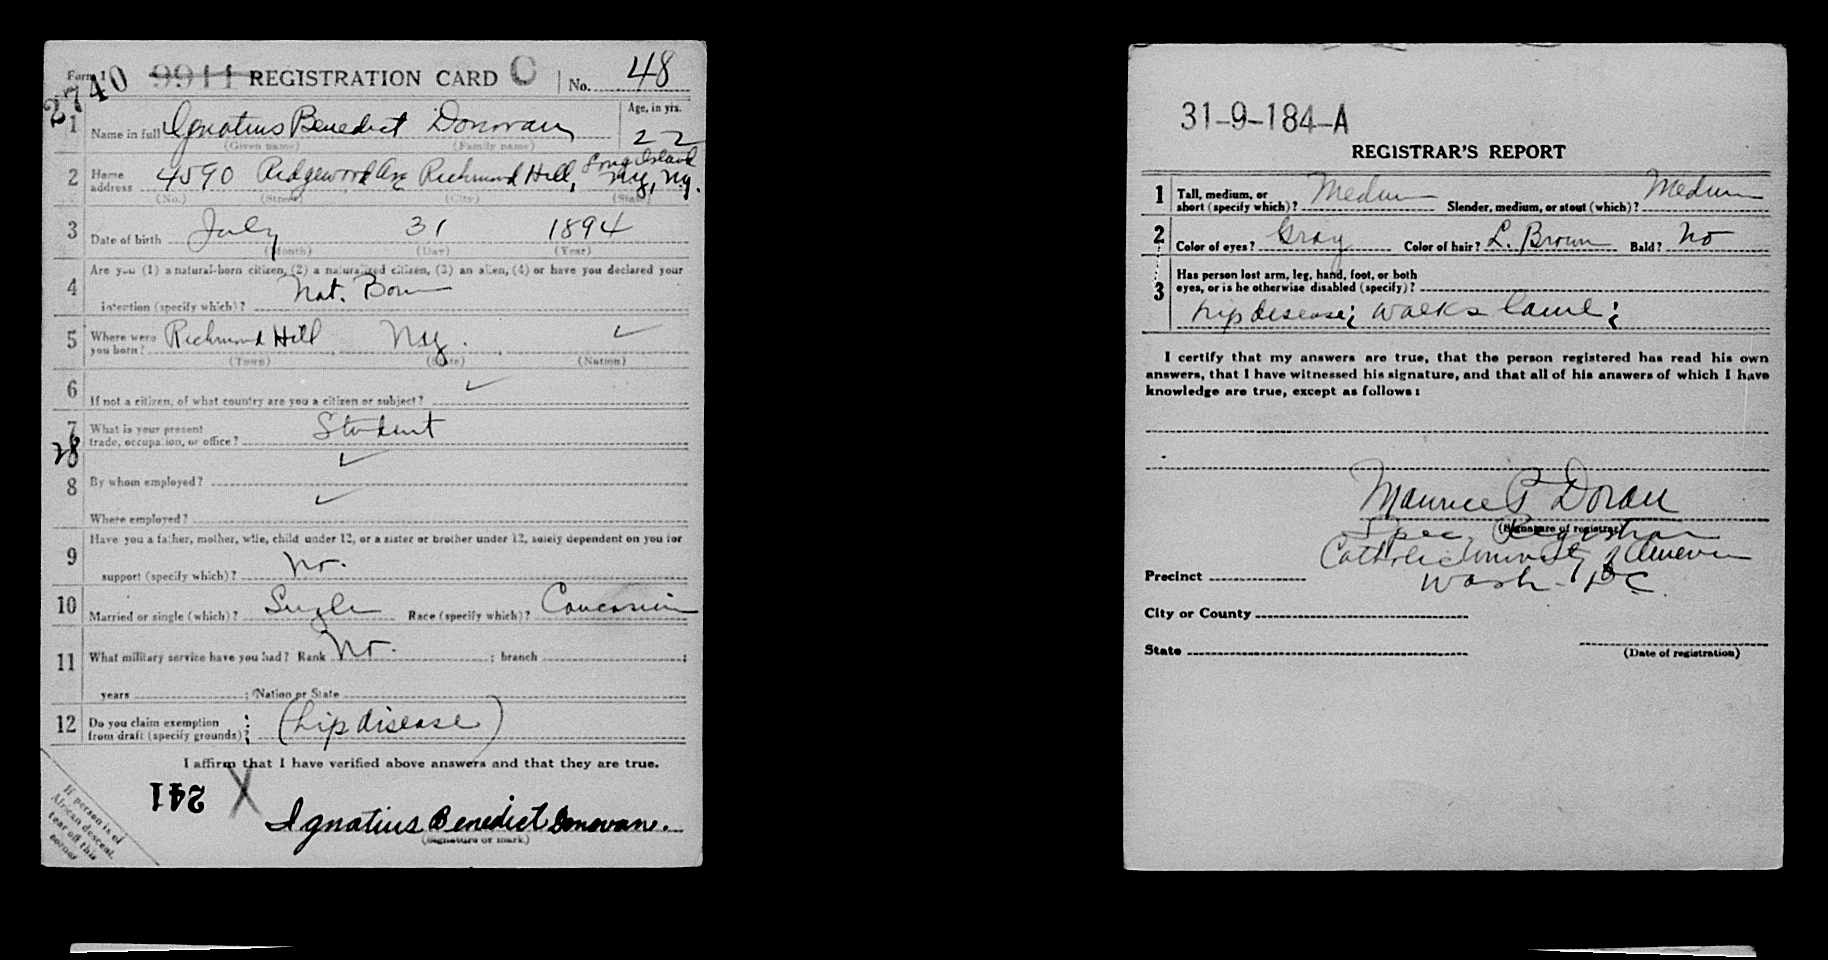 Form 1 9911 REGISTRATION CARD C No. 48
2740
1 Name in full Ignatius Benedict Donovan Age, in yrs. 22
(Given name) (Family name)
2 Home address 4590 Ridgewood Ave Richmond Hill, Long Island N.Y., N.Y.
(No.) (Street) (City) (State)
3 Date of birth July 31 1894
(Month) (Day) (Year)
Are you (1) a natural-born citizen, (2) a naturalized citizen, (3) an alien, (4) or have you declared your
4 intention (specify which)? Nat. Born
5 Where were you born? Richmond Hill N.Y. ✓
(Town) (State) (Nation)
6 If not a citizen, of what country are you a citizen or subject? ✓
7 What is your present
trade, occupation, or office? Student
28
8 By whom employed? ✓
Where employed? ✓
Have you a father, mother, wife, child under 12, or a sister or brother under 12, solely dependent on you for
9 support (specify which)? No.
10 Married or single (which)? Single Race (specify which)? Caucasian
11 What military service have you had? Rank No. ; branch ;
years ; Nation or State
12 Do you claim exemption
from draft (specify grounds)? (hip disease)
I affirm that I have verified above answers and that they are true.
241 X
Ignatius Benedict Donovan.
(Signature or mark)
If person is of
African descent,
tear off this
corner
31-9-184-A
REGISTRAR'S REPORT
1 Tall, medium, or
short (specify which)? Medium Slender, medium, or stout (which)? Medium
2 Color of eyes? Gray Color of hair? L. Brown Bald? No
Has person lost arm, leg, hand, foot, or both
3 eyes, or is he otherwise disabled (specify)?
hip disease; walks lame;
I certify that my answers are true, that the person registered has read his own
answers, that I have witnessed his signature, and that all of his answers of which I have
knowledge are true, except as follows:
Maurice P Doran
(Signature of registrar)
Spec. Registrar
Catholic University of America
Precinct Wash. D.C.
City or County
State
(Date of registration)